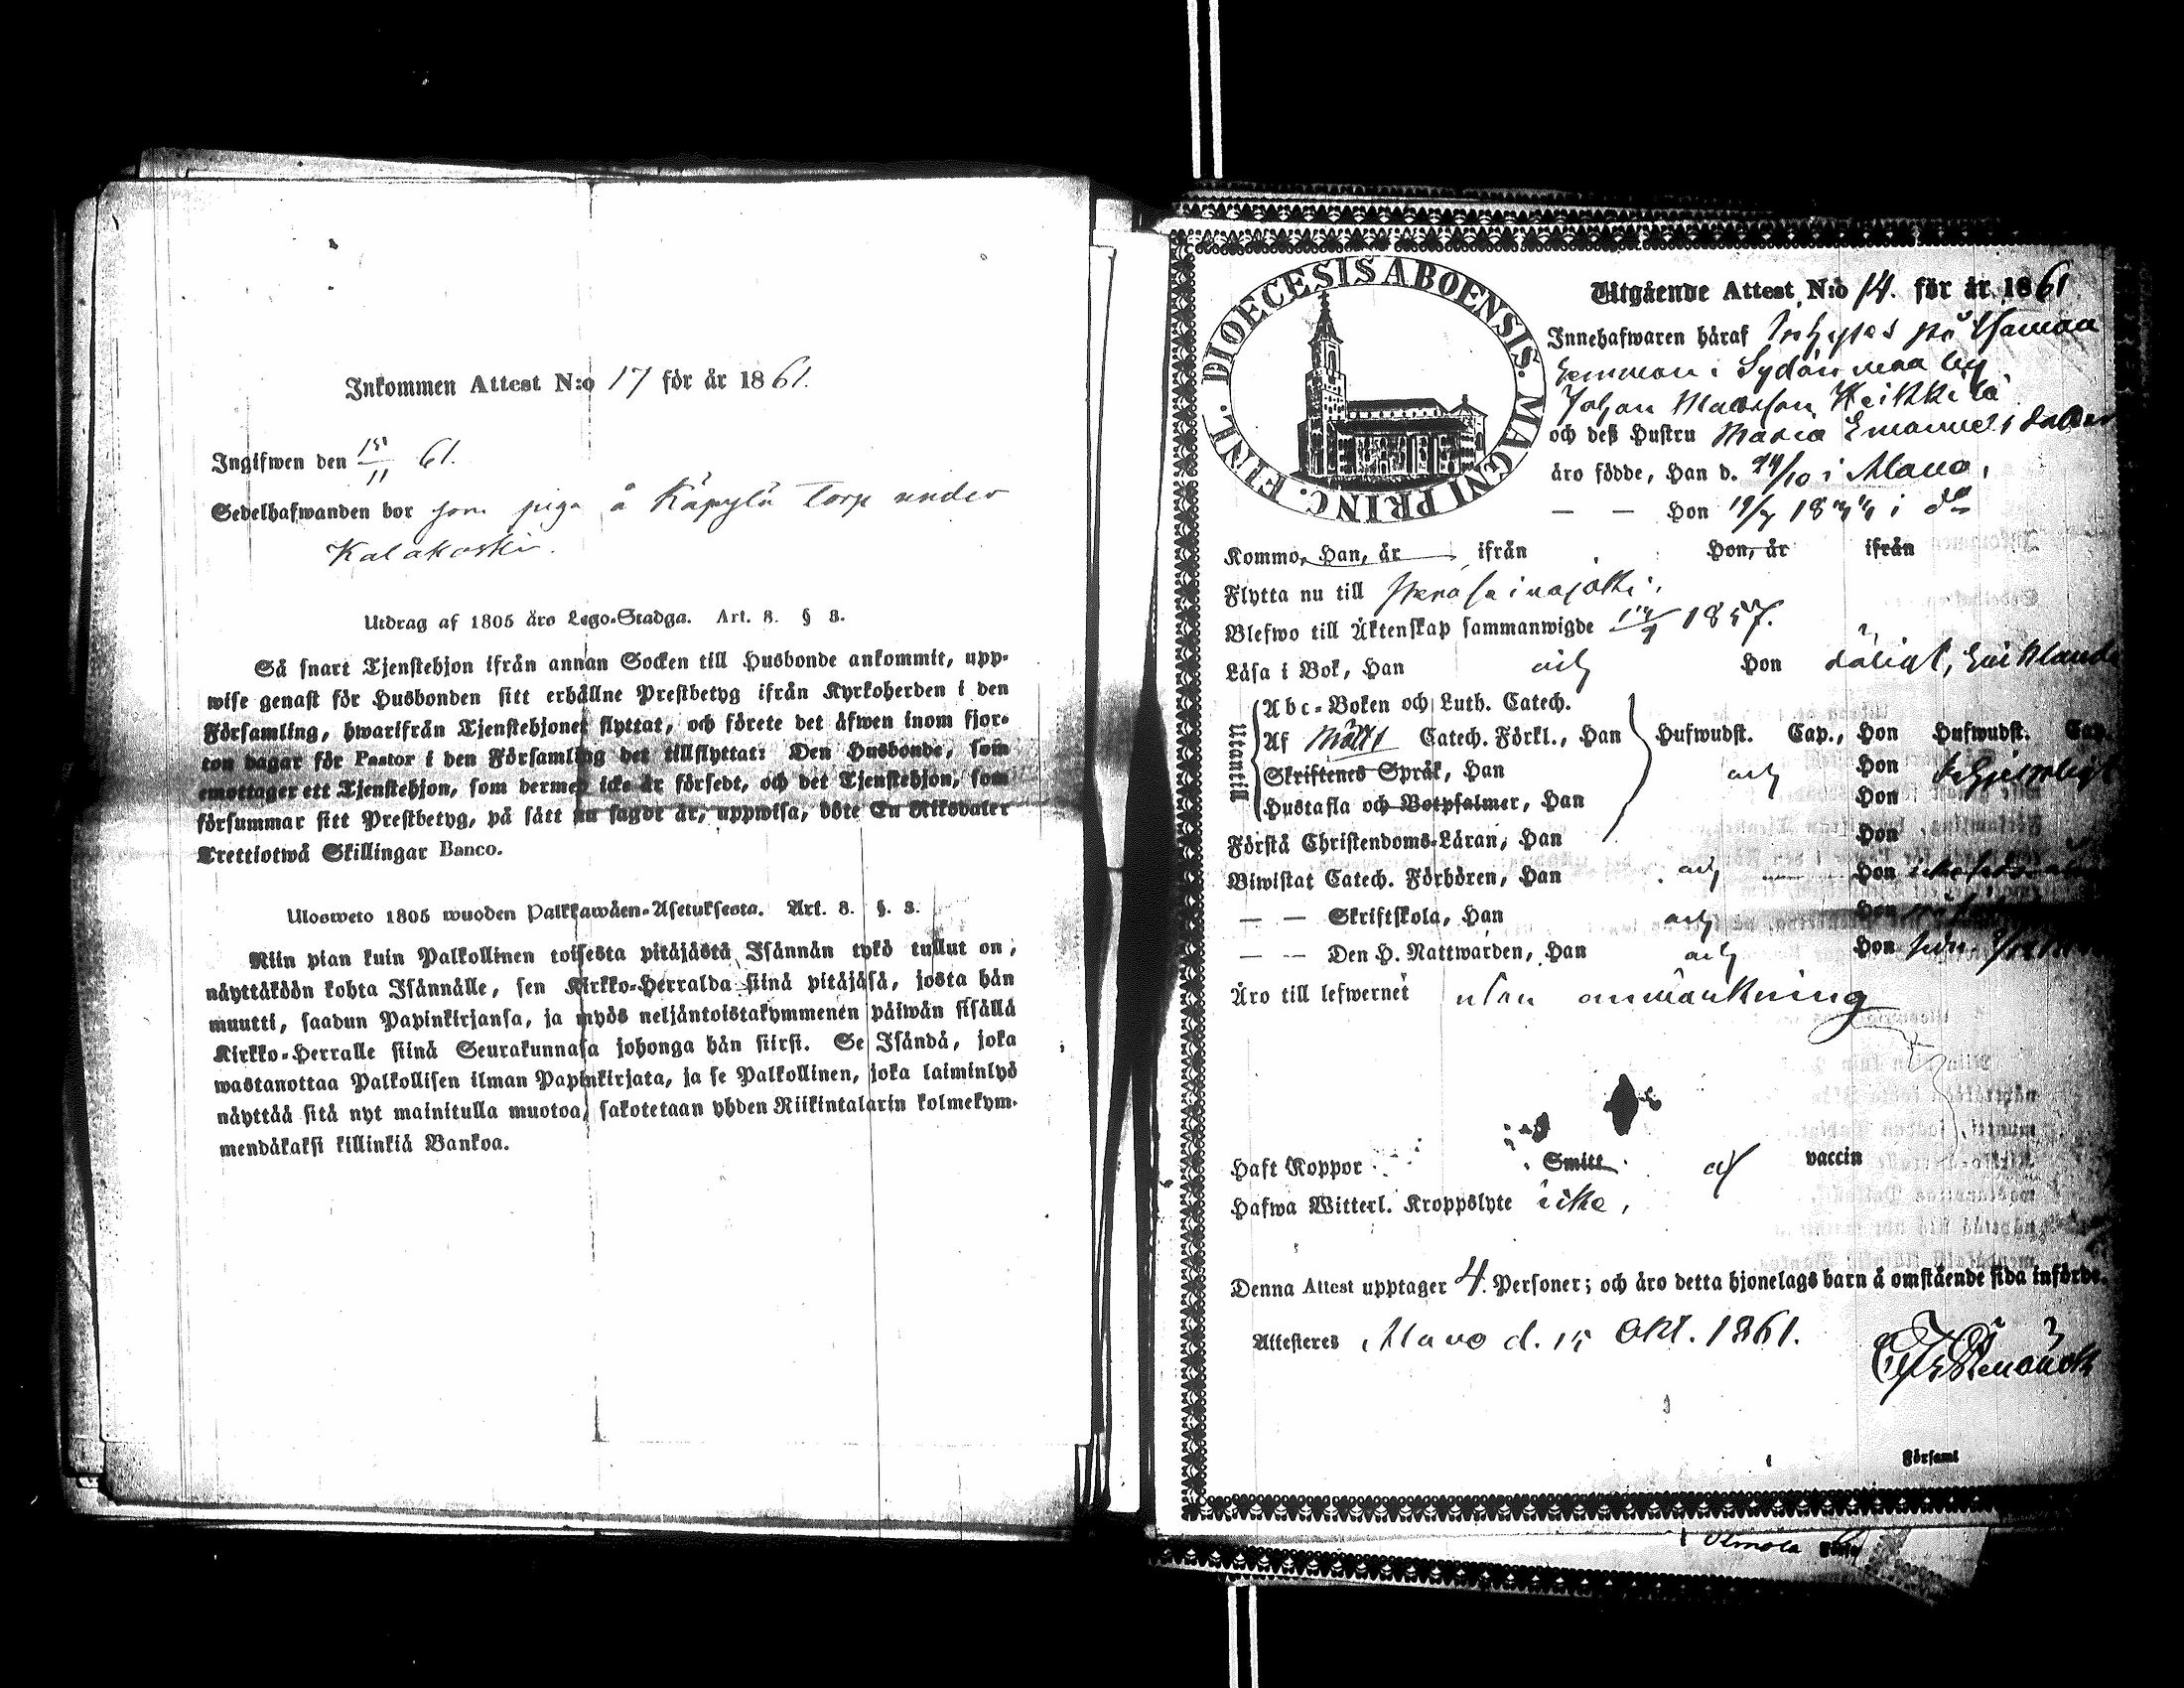 Inkommen Attest N:o 17 för år 1861.
Ingifwen den 15/11 61.
Sedelhafwanden bor som piga å Käpylä torp under
Kalakoski.
Utdrag af 1805 års Lego-Stadga. Art. 8. § 3.
Så snart Tjenstehjon ifrån annan Socken till Husbonde ankommit, upp-
wise genast för Husbonden sitt erhållne Prestbetyg ifrån Kyrkoherden i den
Församling, hwarifrån Tjenstehjonet flyttat, och förete det äfwen inom fjor-
ton dagar för Pastor i den Församling det tillflyttat: Den Husbonde, som
emottager ett Tjenstehjon, som dermed icke är försedt, och det Tjenstehjon, som
försummar sitt Prestbetyg, på sätt nu sagdt är, uppwisa, böte En Riksdaler
Trettiotwå Skillingar Banco.
Ulosweto 1805 wuoden Palkkawäen-Asetuksesta. Art. 8. §. 3.
Niin pian kuin Palkollinen toisesta pitäjästä Isännän tykö tullut on,
näyttäköön kohta Isännälle, sen Kirkko-Herralda siinä pitäjäsä, josta hän
muutti, saadun Papinkirjansa, ja myös neljäntoistakymmenen päiwän sisällä
Kirkko-Herralle siinä Seurakunnasa johonga hän siirsi. Se Isändä, joka
wastanottaa Palkollisen ilman Papinkirjata, ja se Palkollinen, joka laiminlyö
näyttää sitä nyt mainitulla muotoa, sakotetaan yhden Riikintalarin kolmekym-
mendäkaksi killinkiä Bankoa.
DIOECESIS ABOENSIS. MAGNI PRINC. FINL.
Utgående Attest N:o 14. för år 1861
Innehafwaren häraf Inhyses på
hemman i Sydänmaa by
Johan Mattsson Heikkilä
och deß Hustru Maria Emanuels dotter
äro födde, Han d. /10 i Alavo,
— — Hon 19/7 18 i do
Kommo, Han, år ifrån Hon, år ifrån
Flytta nu till Peräseinäjoki,
Blefwo till Äktenskap sammanwigde 1857.
Läsa i Bok, Han Hon dåligt,
Utantill
Abc-Boken och Luth. Catech.
Af Möllers Catech. Förkl., Han Hufwudst. Cap., Hon Hufwudst. Cap.
Skriftenes Språk, Han Hon
Hustafla och Botpsalmer, Han Hon
Förstå Christendoms-Läran, Han Hon
Biwistat Catech. Förhören, Han Hon
— — Skriftskola, Han Hon
— — Den H. Nattwarden, Han Hon
Äro till lefwernet utan anmärkning
Haft Koppor Smitt af vaccin
Hafwa Witterl. Kroppslyte icke,
Denna Attest upptager 4. Personer; och äro detta hjonelags barn å omstående sida införde.
Attesteres Alavo d. 15 Okt. 1861.
Församl